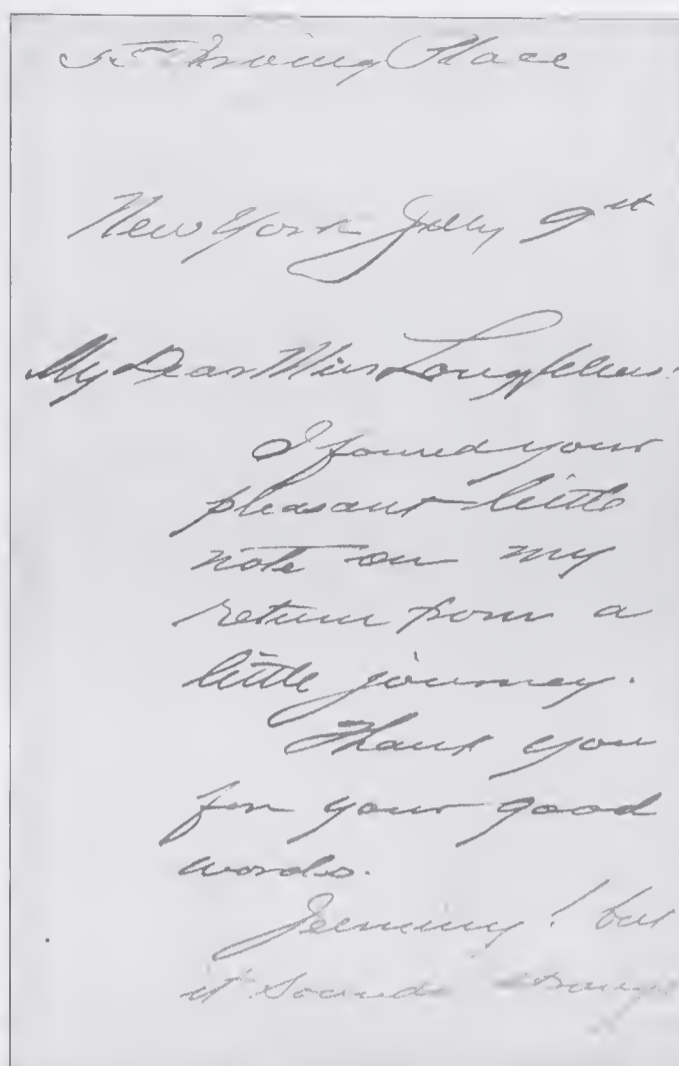 55 Irving Place
New York July 9th
My Dear Miss Longfellow.
I found your
pleasant little
note on my
return from a
little journey.
Thank you
for your good
words.
Jeeminy! but
it sounds